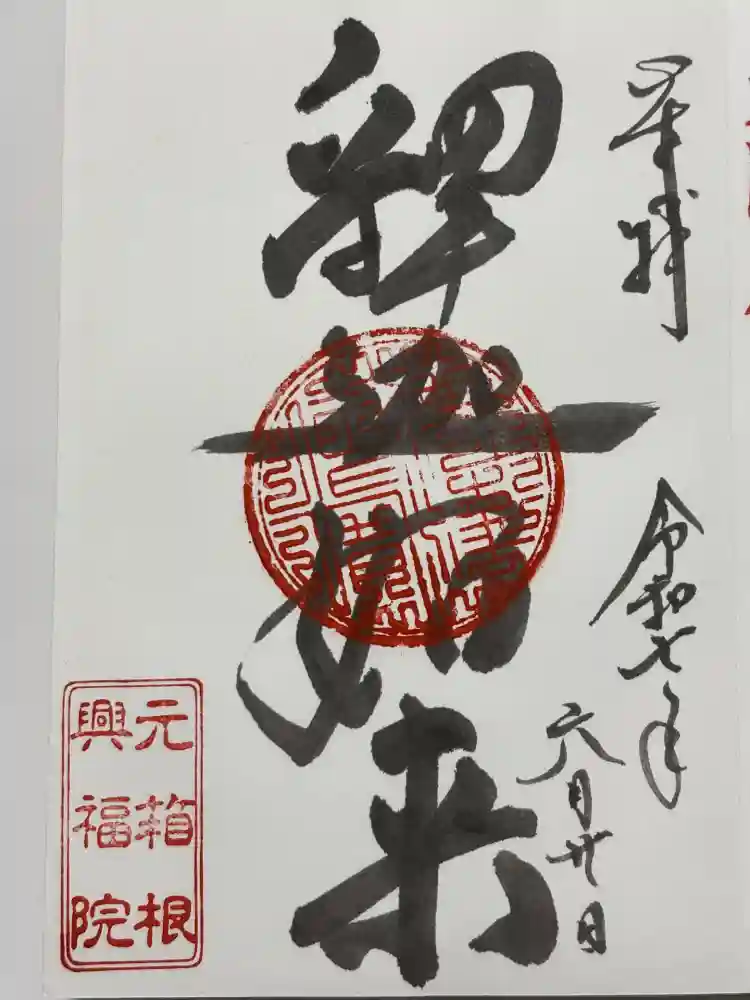 奉拝
令和七年
六月廿日
釈迦如来
元箱根
興福院